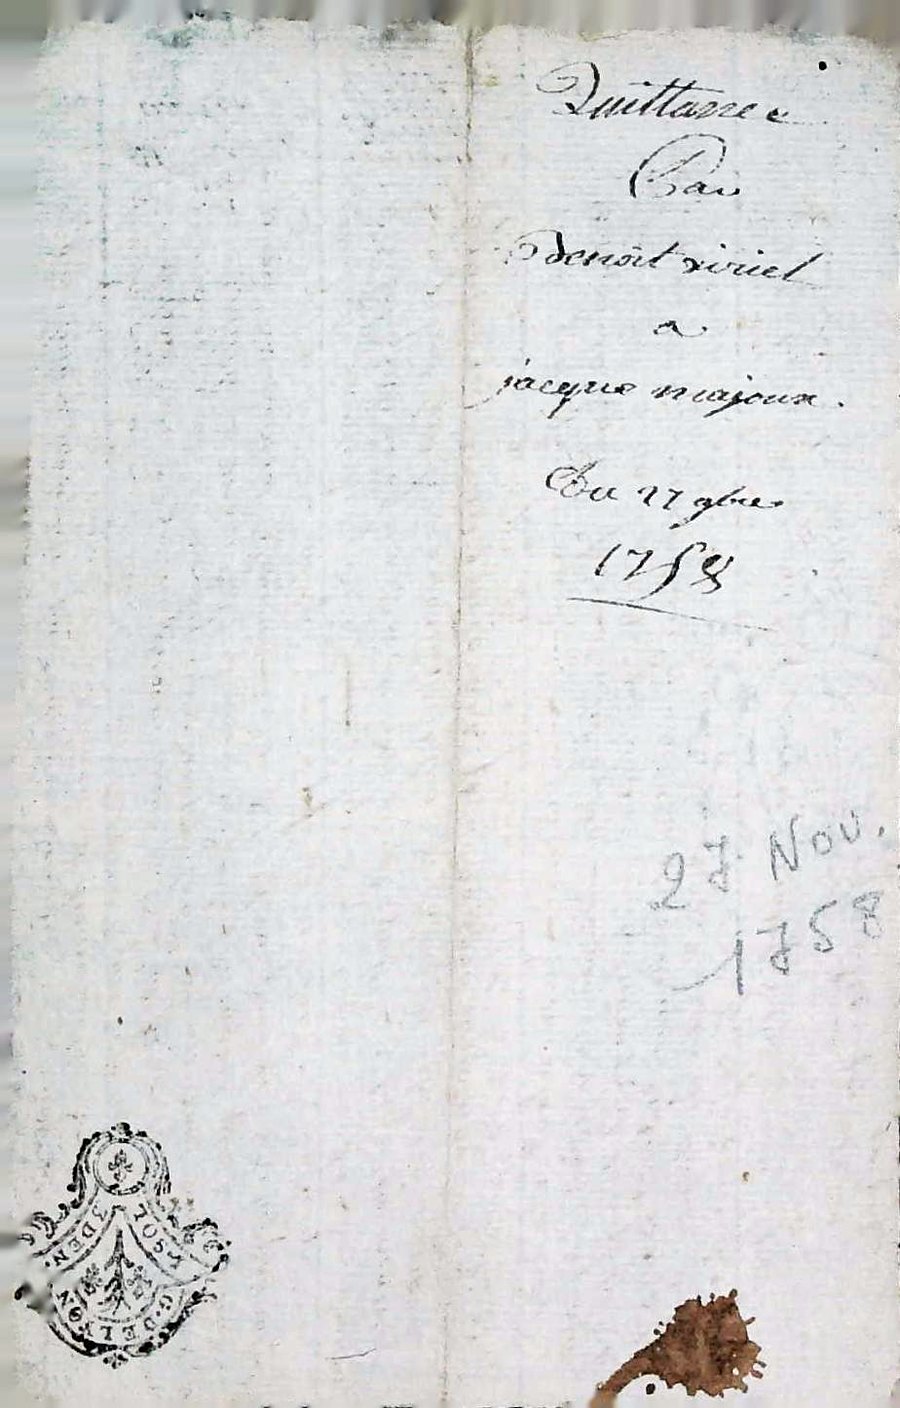 Quittance
Par
Benoit viriel
a
jacque majoux.
Du 27 9bre
1758
27 Nov.
1758
1 SOL
3 DEN.
G. DE LYON